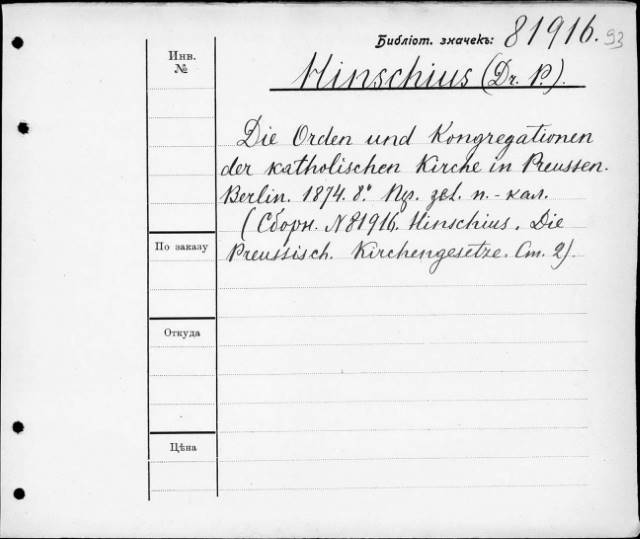 Библіот. значекъ: 81916. 93
Инв.
№
Hinschius (Dr. P.).
Die Orden und Kongregationen
der katholischen Kirche in Preussen.
Berlin. 1874. 8°. п.-кал.
(Сборн. N 81916. Hinschius. Die
Preussisch. Kirchengesetze. Ст. 2).
По заказу
Откуда
Цѣна